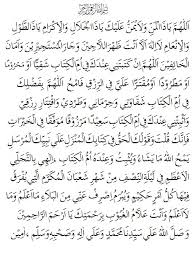 بسم الله الرحمن الرحيم
اللهم ياذا المن ولا يمن عليك ياذا الجلال والإكرام ياذا الطول
والإنعام لا إله إلا أنت ظهر اللاجين وجار المستجيرين وأمان
الخائفين اللهم إن كنت كتبتني عندك في أم الكتاب شقيا أو محروما
أو مطرودا أو مقترا علي في الرزق فامح اللهم بفضلك
في أم الكتاب شقاوتي وحرماني وطردي وإقتار رزقي
وأثبتني عندك في أم الكتاب سعيدا مرزوقا موفقا للخيرات
فإنك قلت وقولك الحق في كتابك المنزل على نبيك المرسل
يمحو الله ما يشاء ويثبت وعنده أم الكتاب إلهي بالتجلي
الأعظم في ليلة النصف من شهر شعبان المكرم التي يفرق
فيها كل أمر حكيم ويبرم اصرف عني من البلاء ما أعلم وما
لا أعلم وأنت علام الغيوب برحمتك يا أرحم الراحمين
وصلى الله على سيدنا محمد وعلى آله وصحبه وسلم آمين